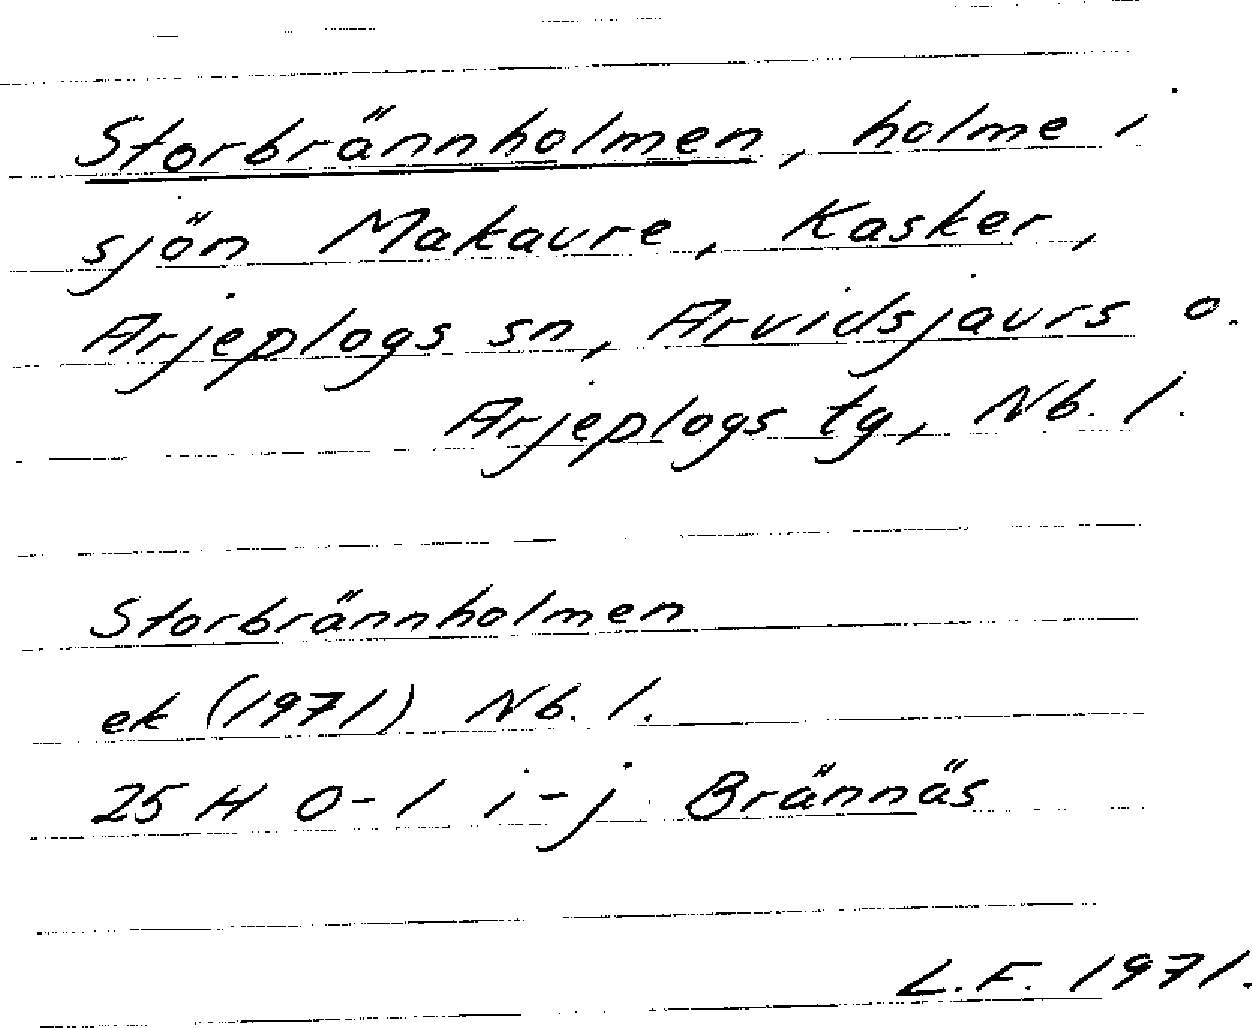 Storbrännholmen, holme i
sjön Makaure, Kasker,
Arjeplogs sn, Arvidsjaurs o.
Arjeplogs tg, Nb. l.
Storbrännholmen
ek (1971) Nb. l.
25 H 0-1 i-j Brännäs
L.F. 1971.